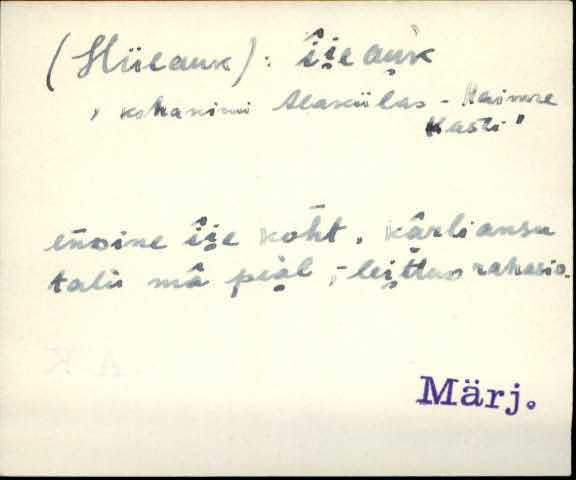 (Hiieauk): î̬i̬e au̬k
, kohanimi Alakülas - Haimre
Kasti"
eńdine î̬i̬e koht, kârliansu
talu mâ pi̬äl, - lei̬ttud rahasid.
Märj.